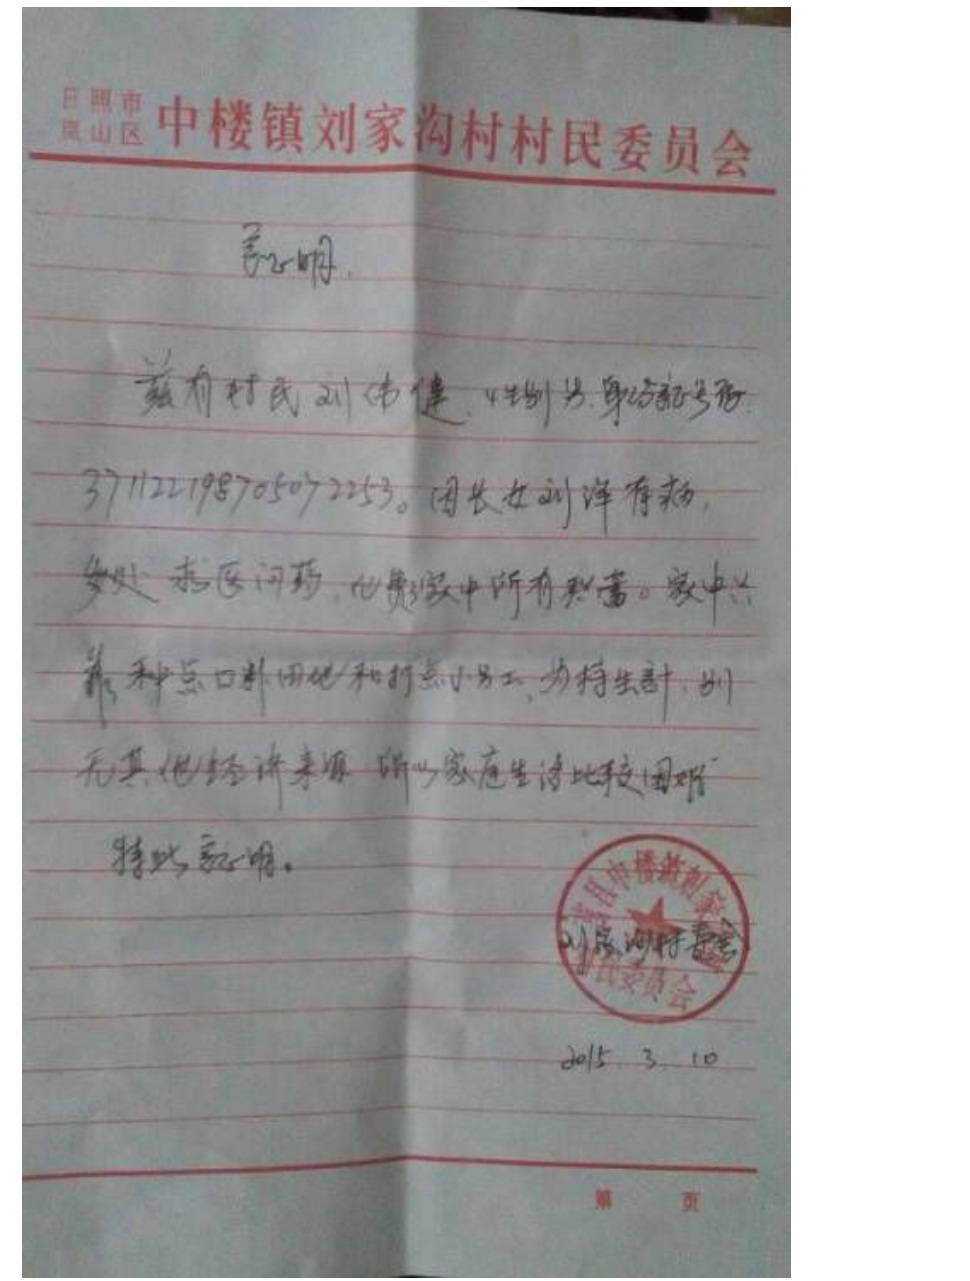 日照市
岚山区 中楼镇刘家沟村村民委员会
证明.
兹有村民刘伟健，性别男，身份证号码
371122198705072253。因长女刘洋有病，
多处求医问药，花费家中所有积蓄。家中只
靠种点口粮田地和打点小零工，为持生计，别
无其他经济来源 所以家庭生活比较困难
特此证明。
莒县中楼镇刘家沟村民委员会
刘家沟村委会
2015.3.10
第 页